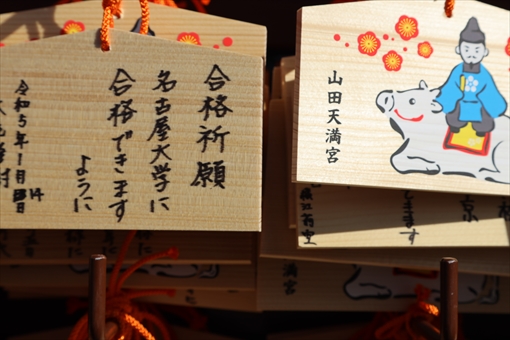 合格祈願
名古屋大学に
合格できます
ように
令和5年1月14日
山田天満宮
ます
満宮